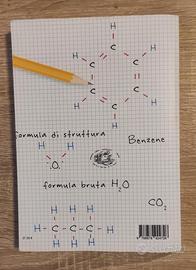 H
H C H
C C
C C
H C H
H
formula di struttura
Benzene
H H
O
formula bruta H₂O
CO₂
H H H
H C C C H
H H H